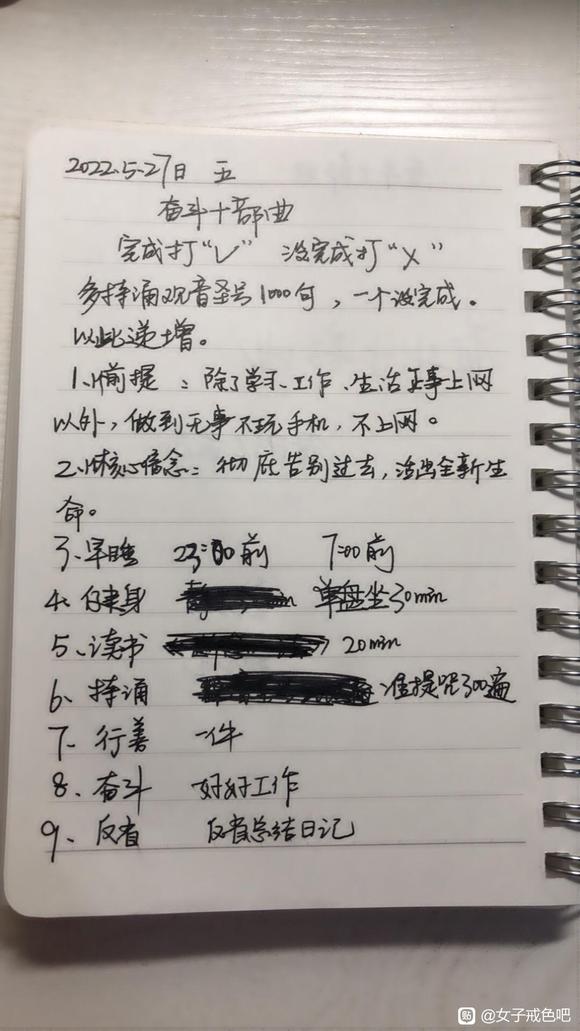 2022.5-27日 五
奋斗十部曲
完成打“√” 没完成打“×”
多持诵观音圣号1000句，一个没完成。
以此递增。
1、前提：除了学习、工作、生活正事上网
以外，做到无事不玩手机，不上网。
2、核心信念：彻底告别过去，活出全新生
命。
3、早睡 23:00前 7:00前
4、健身 单盘坐30min
5、读书 20min
6、持诵 准提咒300遍
7、行善 一件
8、奋斗 好好工作
9、反省 反省总结日记
贴 @女子戒色吧